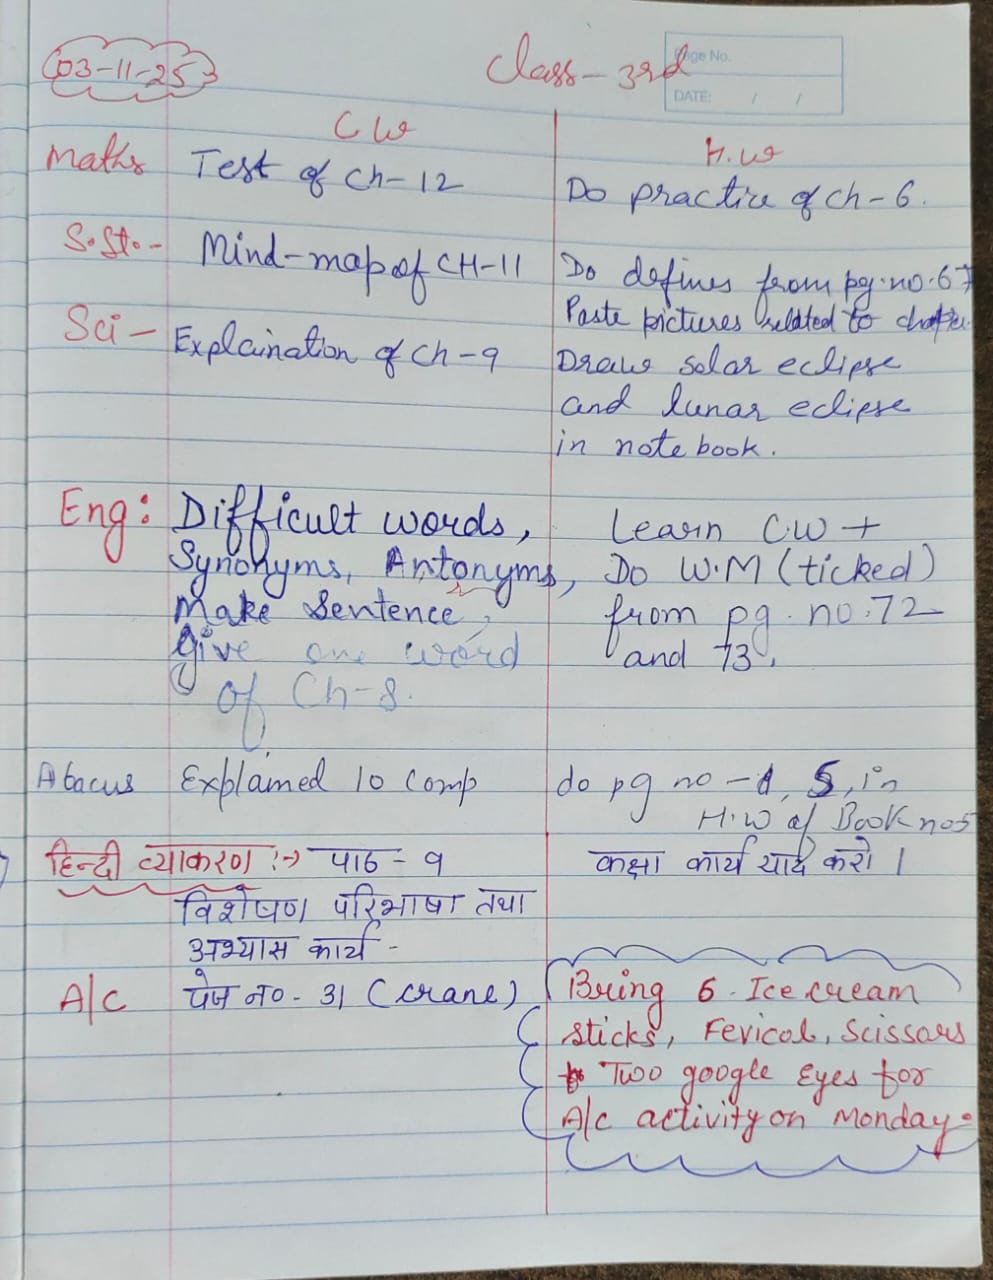 03-11-25
Class - 3rd
Page No.
DATE: / /
C W
H.W
Maths Test of Ch-12
Do practice of Ch-6.
S.St.- Mind-map of CH-11
Do defines from pg.no.67
Paste pictures related to chapter.
Sci- Explaination of Ch-9
Draw solar eclipse
and lunar eclipse
in notebook.
Eng: Difficult words,
Synonyms, Antonyms,
Make Sentence,
Give one word
of Ch-8.
Learn CW +
Do W.M (ticked)
from pg. no.72
and 73.
Abacus Explained 10 comp
do pg no - 4, 5, in
H.W of Book no 5
हिन्दी व्याकरण :-> पाठ - 9
विशेषण परिभाषा तथा
अभ्यास कार्य -
कक्षा कार्य याद करो ।
A/C पेज न० - 31 (Crane)
Bring 6 Ice cream
sticks, Fevicol, Scissors
Two google Eyes for
A/c activity on Monday.